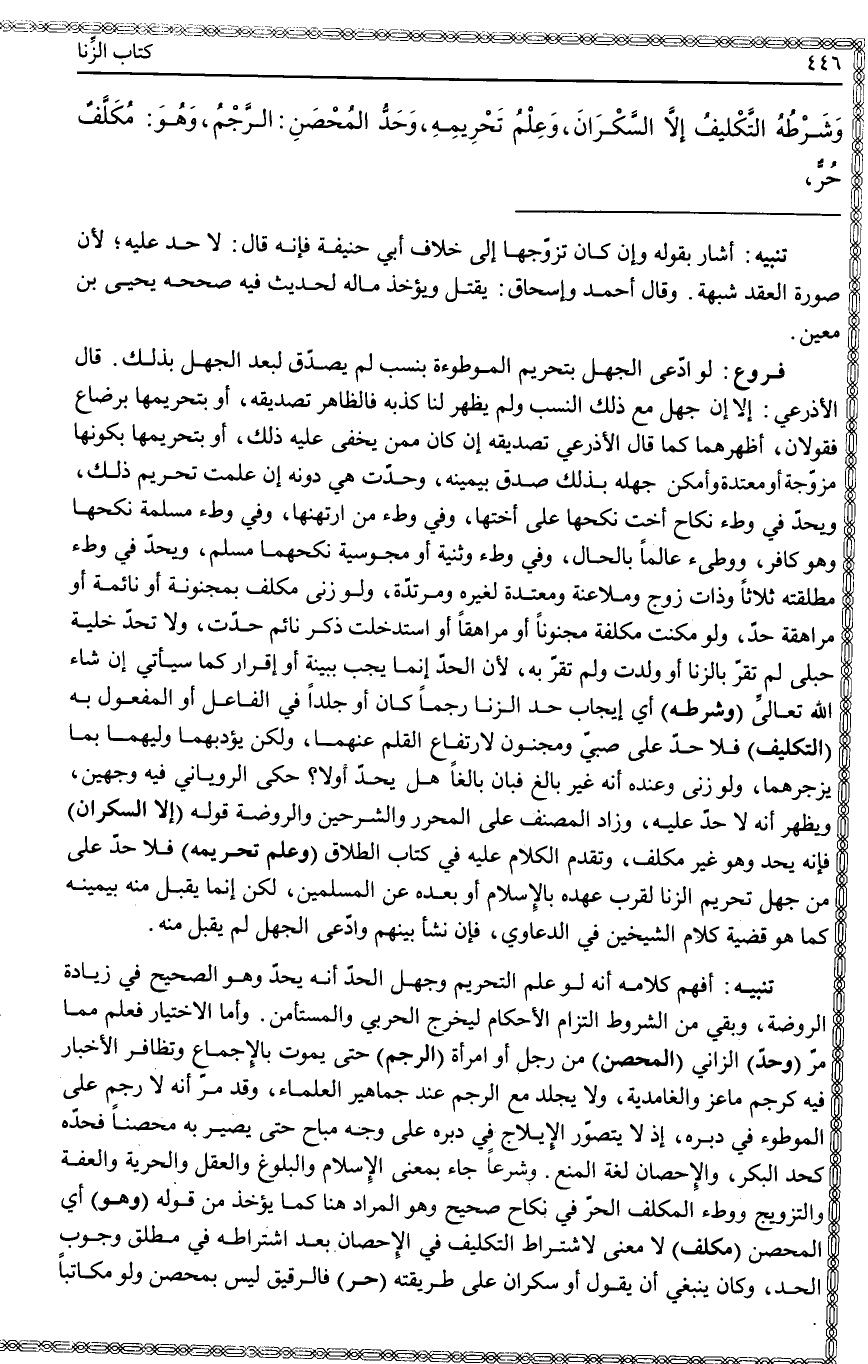 ٤٤٦
كتاب الزِّنا
وَشَــرْطُهُ التَّكْلِيفُ إلَّا السَّكْرَانَ، وَعِلْمُ تَحْرِيمِـهِ، وَحَدُّ المُحْصَنِ: الـرَّجْمُ، وَهُوَ: مُكَلَّفٌ
حُرٌّ،
تنبيه: أشار بقوله وإن كـان تزوّجهـا إلى خلاف أبي حنيفـة فإنـه قال: لا حـد عليه؛ لأن
صورة العقد شبهة. وقال أحمـد وإسحاق: يقتـل ويؤخذ مـاله لحـديث فيه صححـه يحيـى بن
معين.
فـروع: لو ادّعى الجهـل بتحريم المـوطوءة بنسب لم يصـدّق لبعد الجهـل بذلـك. قال
الأذرعي: إلا إن جهـل مع ذلك النسب ولم يظهر لنا كذبه فالظاهر تصديقه، أو بتحريمها برضاع
فقولان، أظهرهما كما قال الأذرعي تصديقه إن كان ممن يخفى عليه ذلك، أو بتحريمها بكونها
مزوّجة أو معتدة وأمكن جهله بـذلك صـدق بيمينه، وحـدّت هي دونه إن علمت تحـريم ذلـك،
ويحدّ في وطء نكاح أخت نكحها على أختها، وفي وطء من ارتهنها، وفي وطء مسلمة نكحهـا
وهو كافر، ووطىء عالماً بالحال، وفي وطء وثنية أو مجـوسية نكحهمـا مسلم، ويحـدّ في وطء
مطلقته ثلاثاً وذات زوج ومـلاعنة ومعتـدة لغيره ومـرتدّة، ولـو زنى مكلف بمجنونـة أو نائمـة أو
مراهقة حدّ، ولو مكنت مكلفة مجنوناً أو مراهقاً أو استدخلت ذكـر نائم حـدّت، ولا تحدّ خليـة
حبلى لم تقرّ بالزنا أو ولدت ولم تقرّ به، لأن الحدّ إنمـا يجب ببينة أو إقـرار كما سيـأتي إن شاء
الله تعـالى (وشرطـه) أي إيجاب حـد الـزنـا رجمـاً كـان أو جلداً في الفـاعل أو المفعـول بـه
(التكليف) فـلا حدّ على صبيّ ومجنـون لارتفـاع القلم عنهمـا، ولكن يؤدبهمـا وليهمـا بمـا
يزجرهما، ولو زنى وعنده أنه غير بالغ فبان بالغاً هـل يحـدّ أولا؟ حكى الرويـاني فيه وجهين،
ويظهر أنه لا حدّ عليـه، وزاد المصنف على المحرر والشرحين والروضة قولـه (إلا السكران)
فإنه يحد وهو غير مكلف، وتقدم الكلام عليه في كتاب الطلاق (وعلم تحـريمه) فـلا حدّ على
من جهل تحريم الزنا لقرب عهده بالإسلام أو بعـده عن المسلمين، لكن إنمـا يقبـل منه بيمينـه
كما هو قضية كلام الشيخين في الدعاوي، فإن نشأ بينهم وادّعى الجهل لم يقبل منه.
تنبيـه: أفهم كلامـه أنه لـو علم التحـريم وجهـل الحدّ أنـه يحدّ وهـو الصحيح في زيـادة
الروضة، وبقي من الشروط التزام الأحكام ليخرج الحربي والمستأمن. وأما الاختيار فعلم ممـا
مرّ (وحدّ) الزاني (المحصن) من رجل أو امرأة (الرجم) حتى يموت بالإجمـاع وتظافـر الأخبار
فيه كرجم ماعز والغامدية، ولا يجلد مع الرجم عند جماهير العلماء، وقد مـرّ أنه لا رجم على
الموطوء في دبـره، إذ لا يتصوّر الإيـلاج في دبره على وجـه مباح حتى يصيـر به محصنـاً فحدّه
كحد البكر، والإحصان لغة المنع. وشرعاً جاء بمعنى الإسلام والبلوغ والعقل والحرية والعفة
والتزويج ووطء المكلف الحرّ في نكاح صحيح وهو المراد هنا كمـا يؤخذ من قوله (وهـو) أي
المحصن (مكلف) لا معنى لاشتـراط التكليف في الإحصـان بعـد اشتراطـه في مـطلق وجـوب
الحـد، وكان ينبغي أن يقول أو سكران على طـريقته (حـر) فالـرقيق ليس بمحصن ولو مكـاتباً